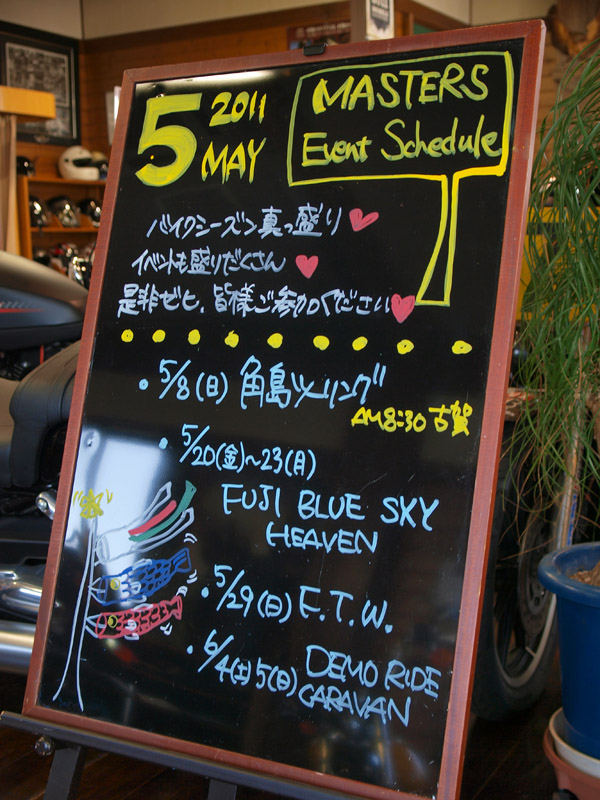 5 2011
MAY
MASTERS
Event Schedule
バイクシーズン真っ盛り
イベントも盛りだくさん
是非ゼヒ、皆様ご参加ください
・5/8(日) 角島ツーリング
AM8:30 古賀
・5/20(金)~23(月)
FUJI BLUE SKY
HEAVEN
・5/29(日) F.T.W.
・6/4(土)5(日) DEMO RIDE
CARAVAN